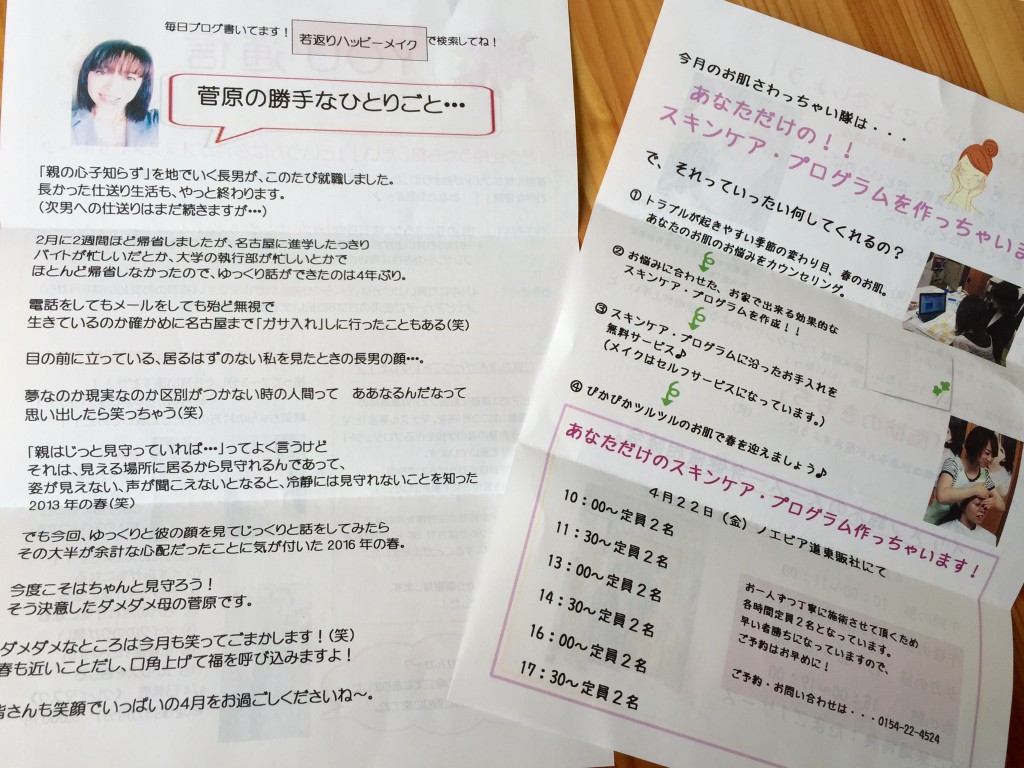 毎日ブログ書いてます！ 若返りハッピーメイク で検索してね！
菅原の勝手なひとりごと・・・
「親の心子知らず」を地でいく長男が、このたび就職しました。
長かった仕送り生活も、やっと終わります。
（次男への仕送りはまだ続きますが・・・）
2月に2週間ほど帰省しましたが、名古屋に進学したっきり
バイトが忙しいだとか、大学の執行部が忙しいとかで
ほとんど帰省しなかったので、ゆっくり話ができたのは4年ぶり。
電話をしてもメールをしても殆ど無視で
生きているのか確かめに名古屋まで「ガサ入れ」しに行ったこともある（笑）
目の前に立っている、居るはずのない私を見たときの長男の顔・・・。
夢なのか現実なのか区別がつかない時の人間って　ああなるんだなって
思い出したら笑っちゃう（笑）
「親はじっと見守っていれば・・・」ってよく言うけど
それは、見える場所に居るから見守れるんであって、
姿が見えない、声が聞こえないとなると、冷静には見守れないことを知った
2013年の春（笑）
でも今回、ゆっくりと彼の顔を見てじっくりと話をしてみたら
その大半が余計な心配だったことに気が付いた2016年の春。
今度こそはちゃんと見守ろう！
そう決意したダメダメ母の菅原です。
ダメダメなところは今月も笑ってごまかします！（笑）
春も近いことだし、口角上げて福を呼び込みますよ！
皆さんも笑顔でいっぱいの4月をお過ごしくださいね～。
今月のお肌さわっちゃい隊は・・・
あなただけの！！
スキンケア・プログラムを作っちゃいま
で、それっていったい何してくれるの？
①トラブルが起きやすい季節の変わり目、春のお肌。
あなたのお肌のお悩みをカウンセリング。
②お悩みに合わせた、お家で出来る効果的な
スキンケア・プログラムを作成！！
③スキンケア・プログラムに沿ったお手入れを
無料サービス♪
（メイクはセルフサービスになっています。）
④ぴかぴかツルツルのお肌で春を迎えましょう♪
あなただけのスキンケア・プログラム作っちゃいます！
4月22日（金）ノエビア道東販社にて
10：00～定員2名
11：30～定員2名
13：00～定員2名
14：30～定員2名
16：00～定員2名
17：30～定員2名
お一人ずつ丁寧に施術させて頂くため
各時間定員2名となっています。
早い者勝ちになっていますので、
ご予約はお早めに！
ご予約・お問い合わせは・・・0154-22-4524